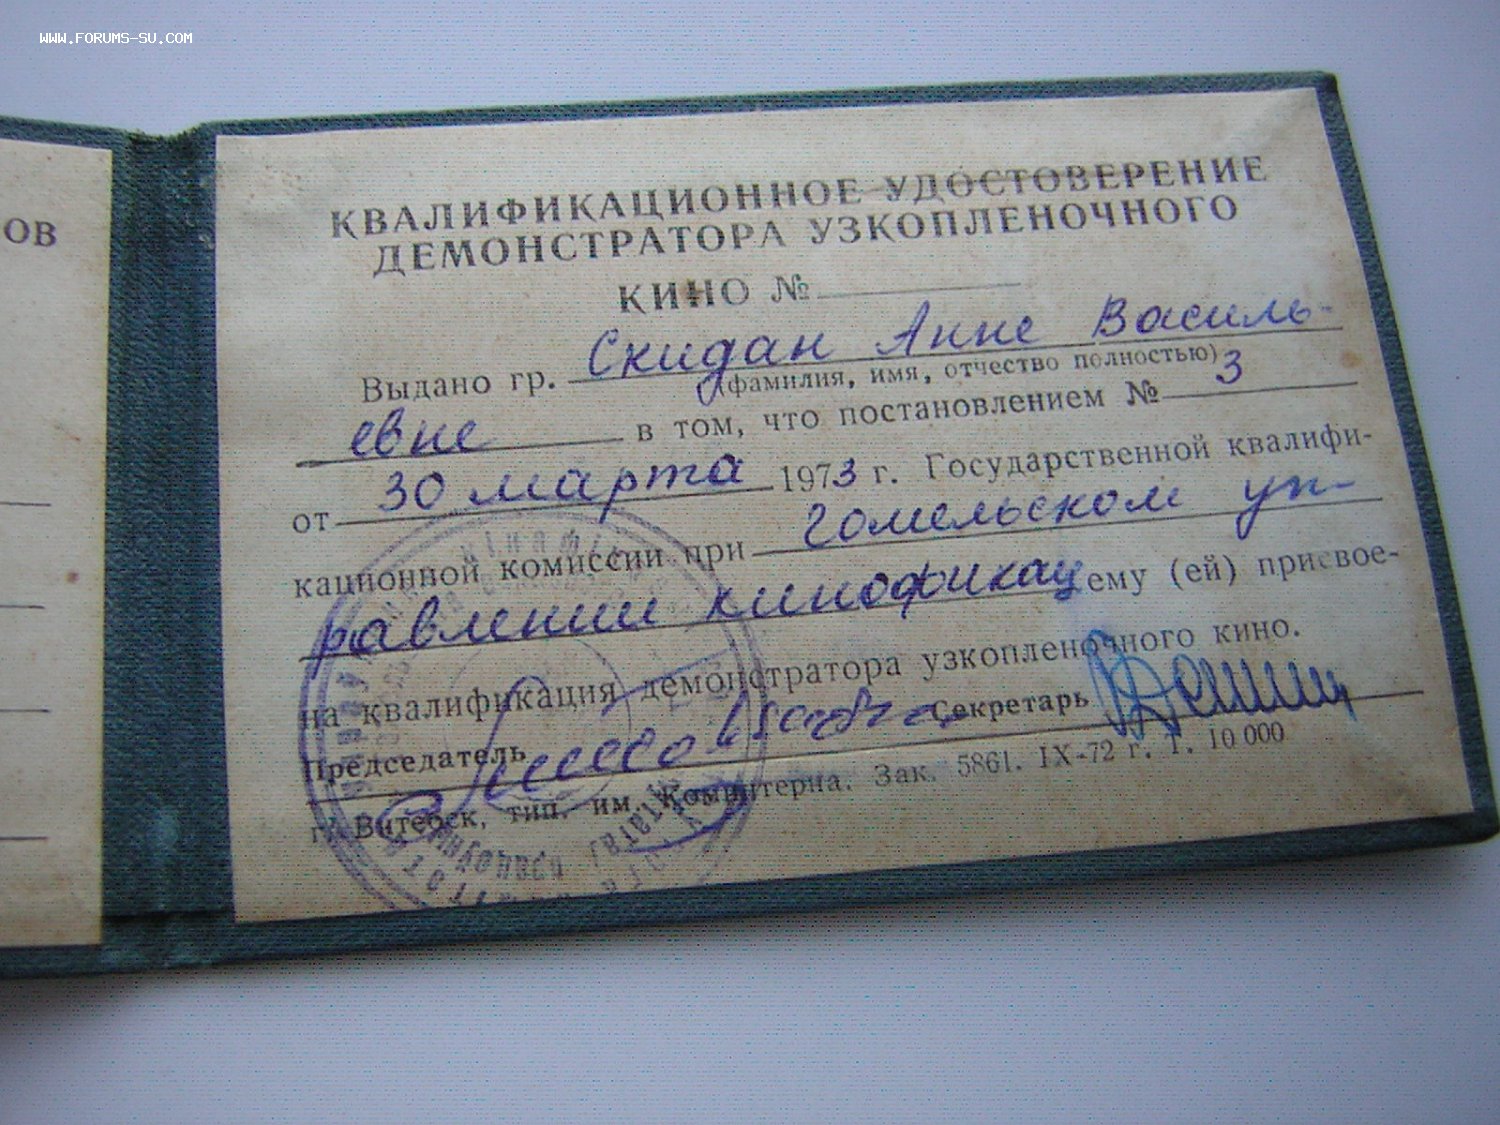 WWW.FORUMS-SU.COM
ОВ
КВАЛИФИКАЦИОННОЕ УДОСТОВЕРЕНИЕ
ДЕМОНСТРАТОРА УЗКОПЛЕНОЧНОГО
КИНО №
Выдано гр. Скидан Анне Василь-
(фамилия, имя, отчество полностью)
евне в том, что постановлением № 3
от 30 марта 1973 г. Государственной квалифи-
кационной комиссии при Гомельском уп-
равлении кинофикац ему (ей) присвое-
на квалификация демонстратора узкопленочного кино.
Председатель Секретарь
г. Витебск, тип. им. Коминтерна. Зак. 5861. IX-72 г. Т. 10 000